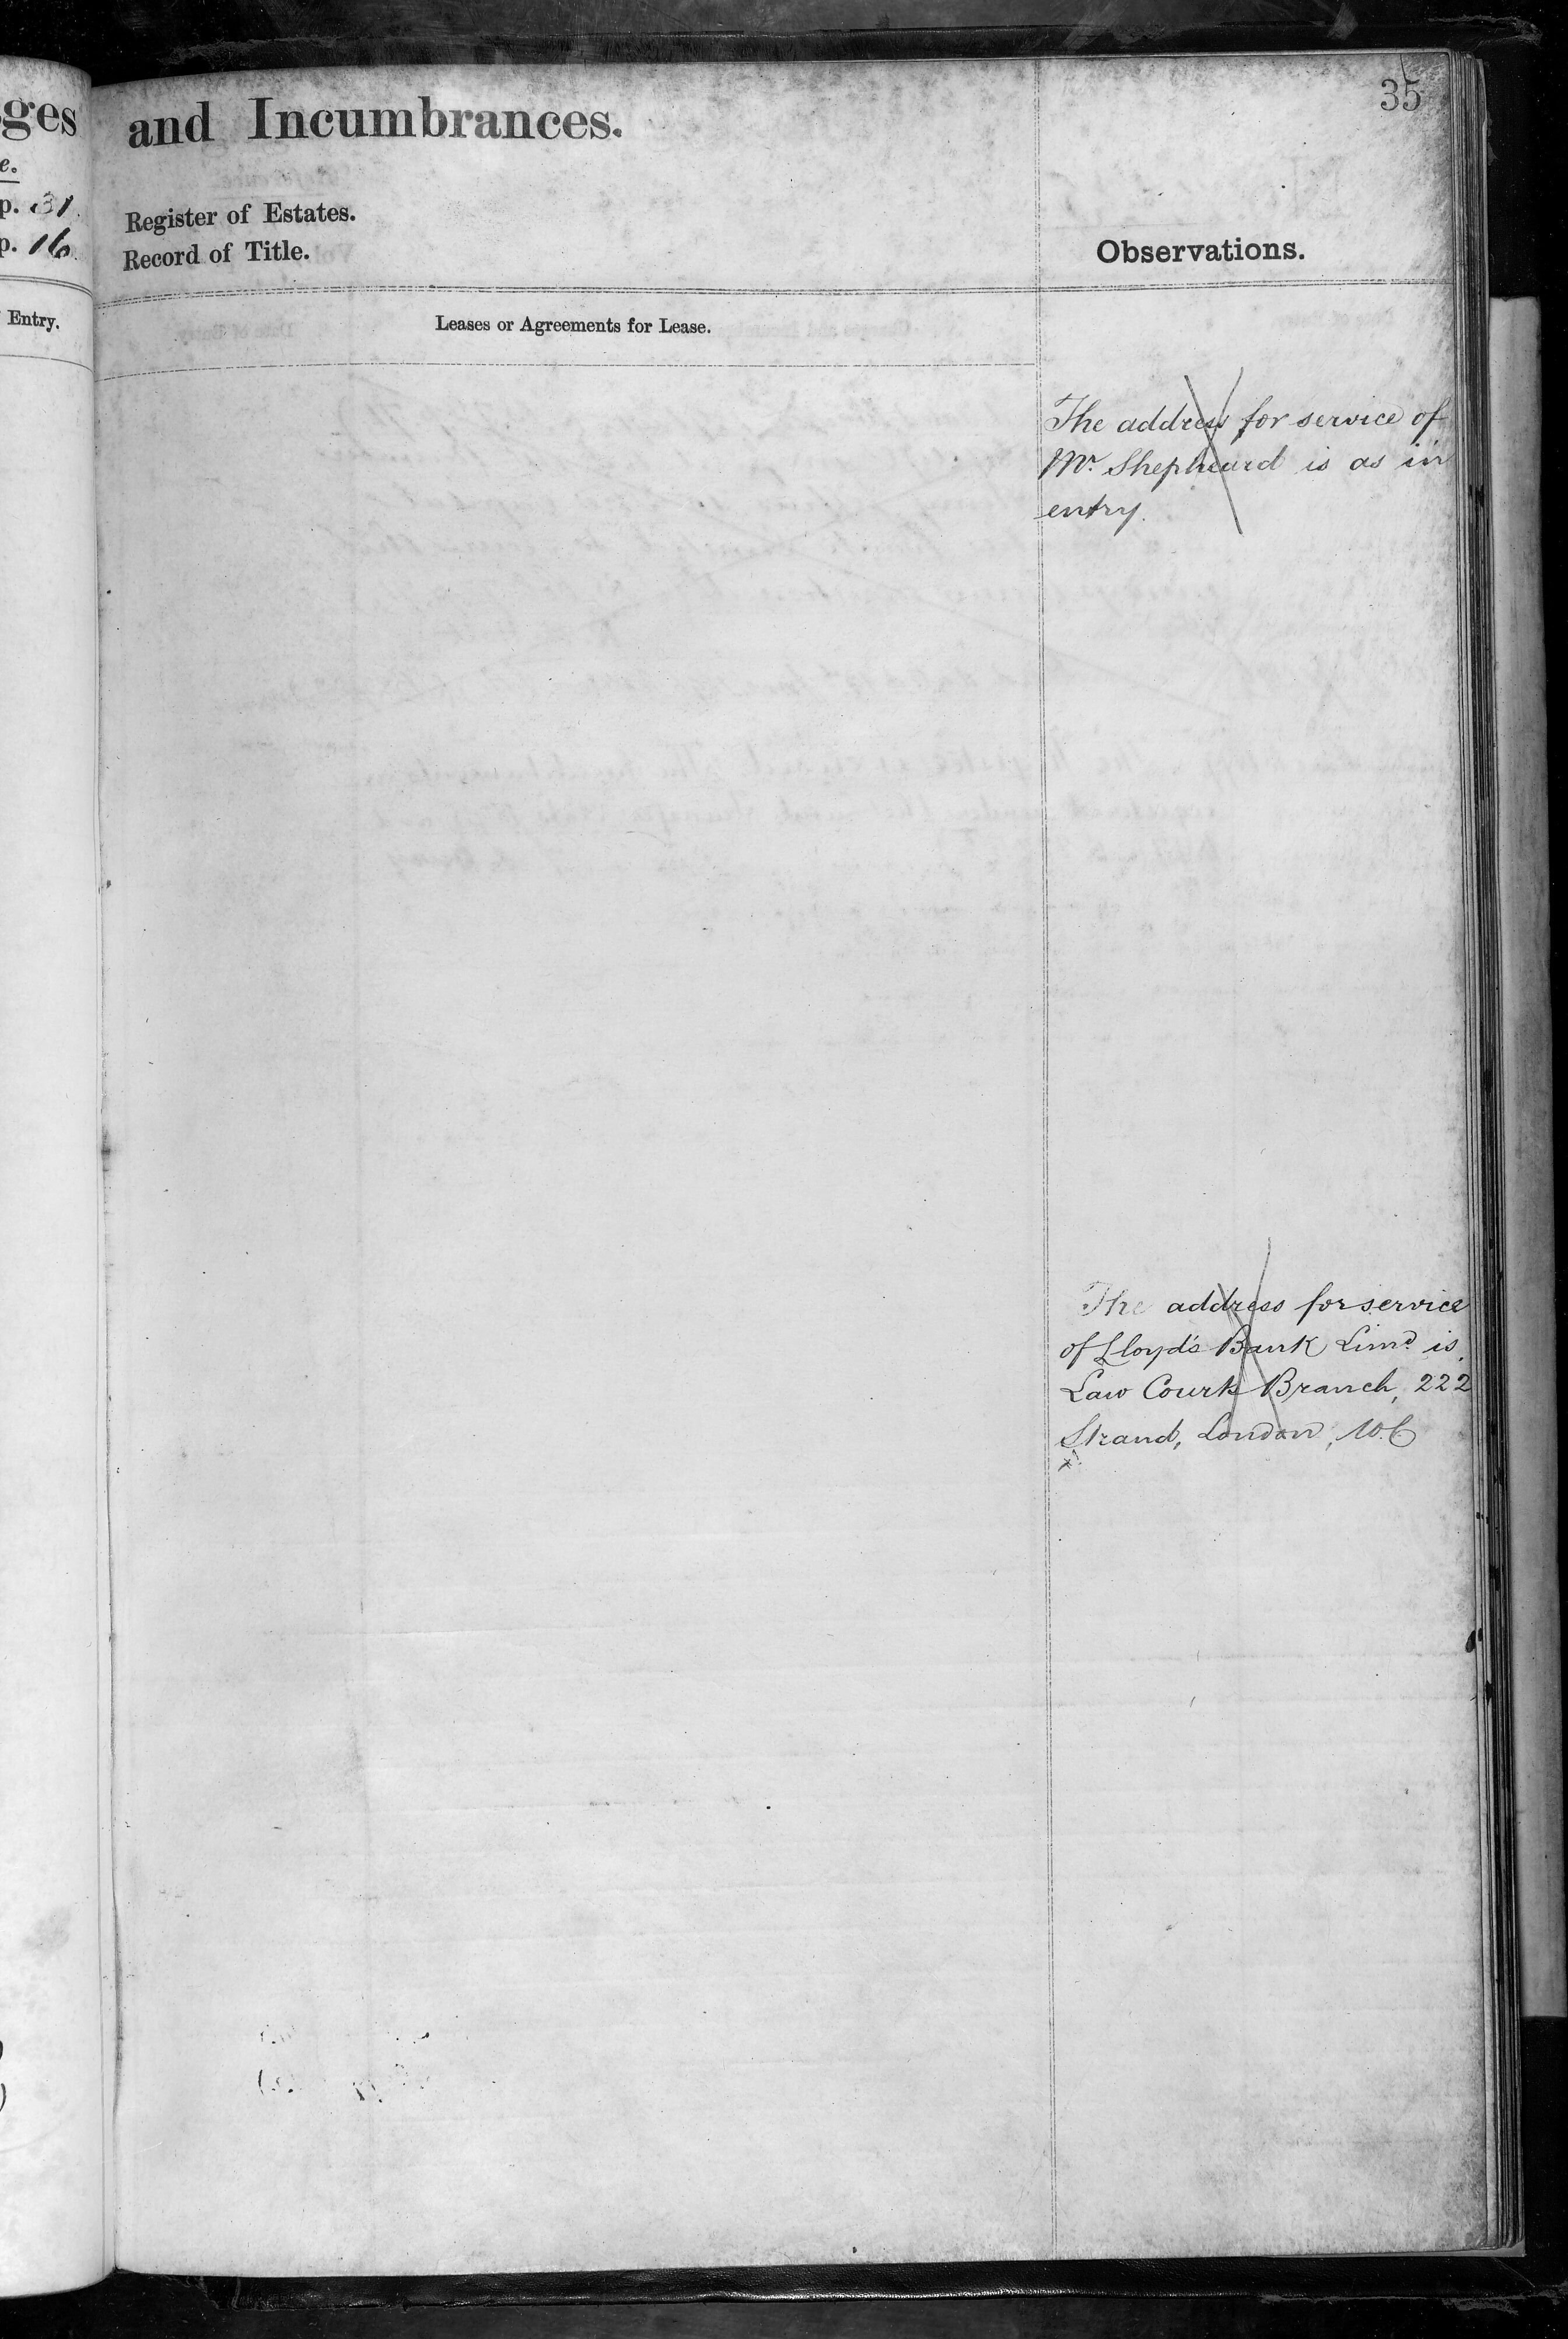 ges
e.
p. 31.
p. 16.
Entry.
35
and Incumbrances.
Register of Estates.
Record of Title.
Observations.
Leases or Agreements for Lease.
The address for service of
Mr. Shepheard is as in
entry.
The address for service
of Lloyd's Bank Limd. is
Law Courts Branch, 222
Strand, London, W.C